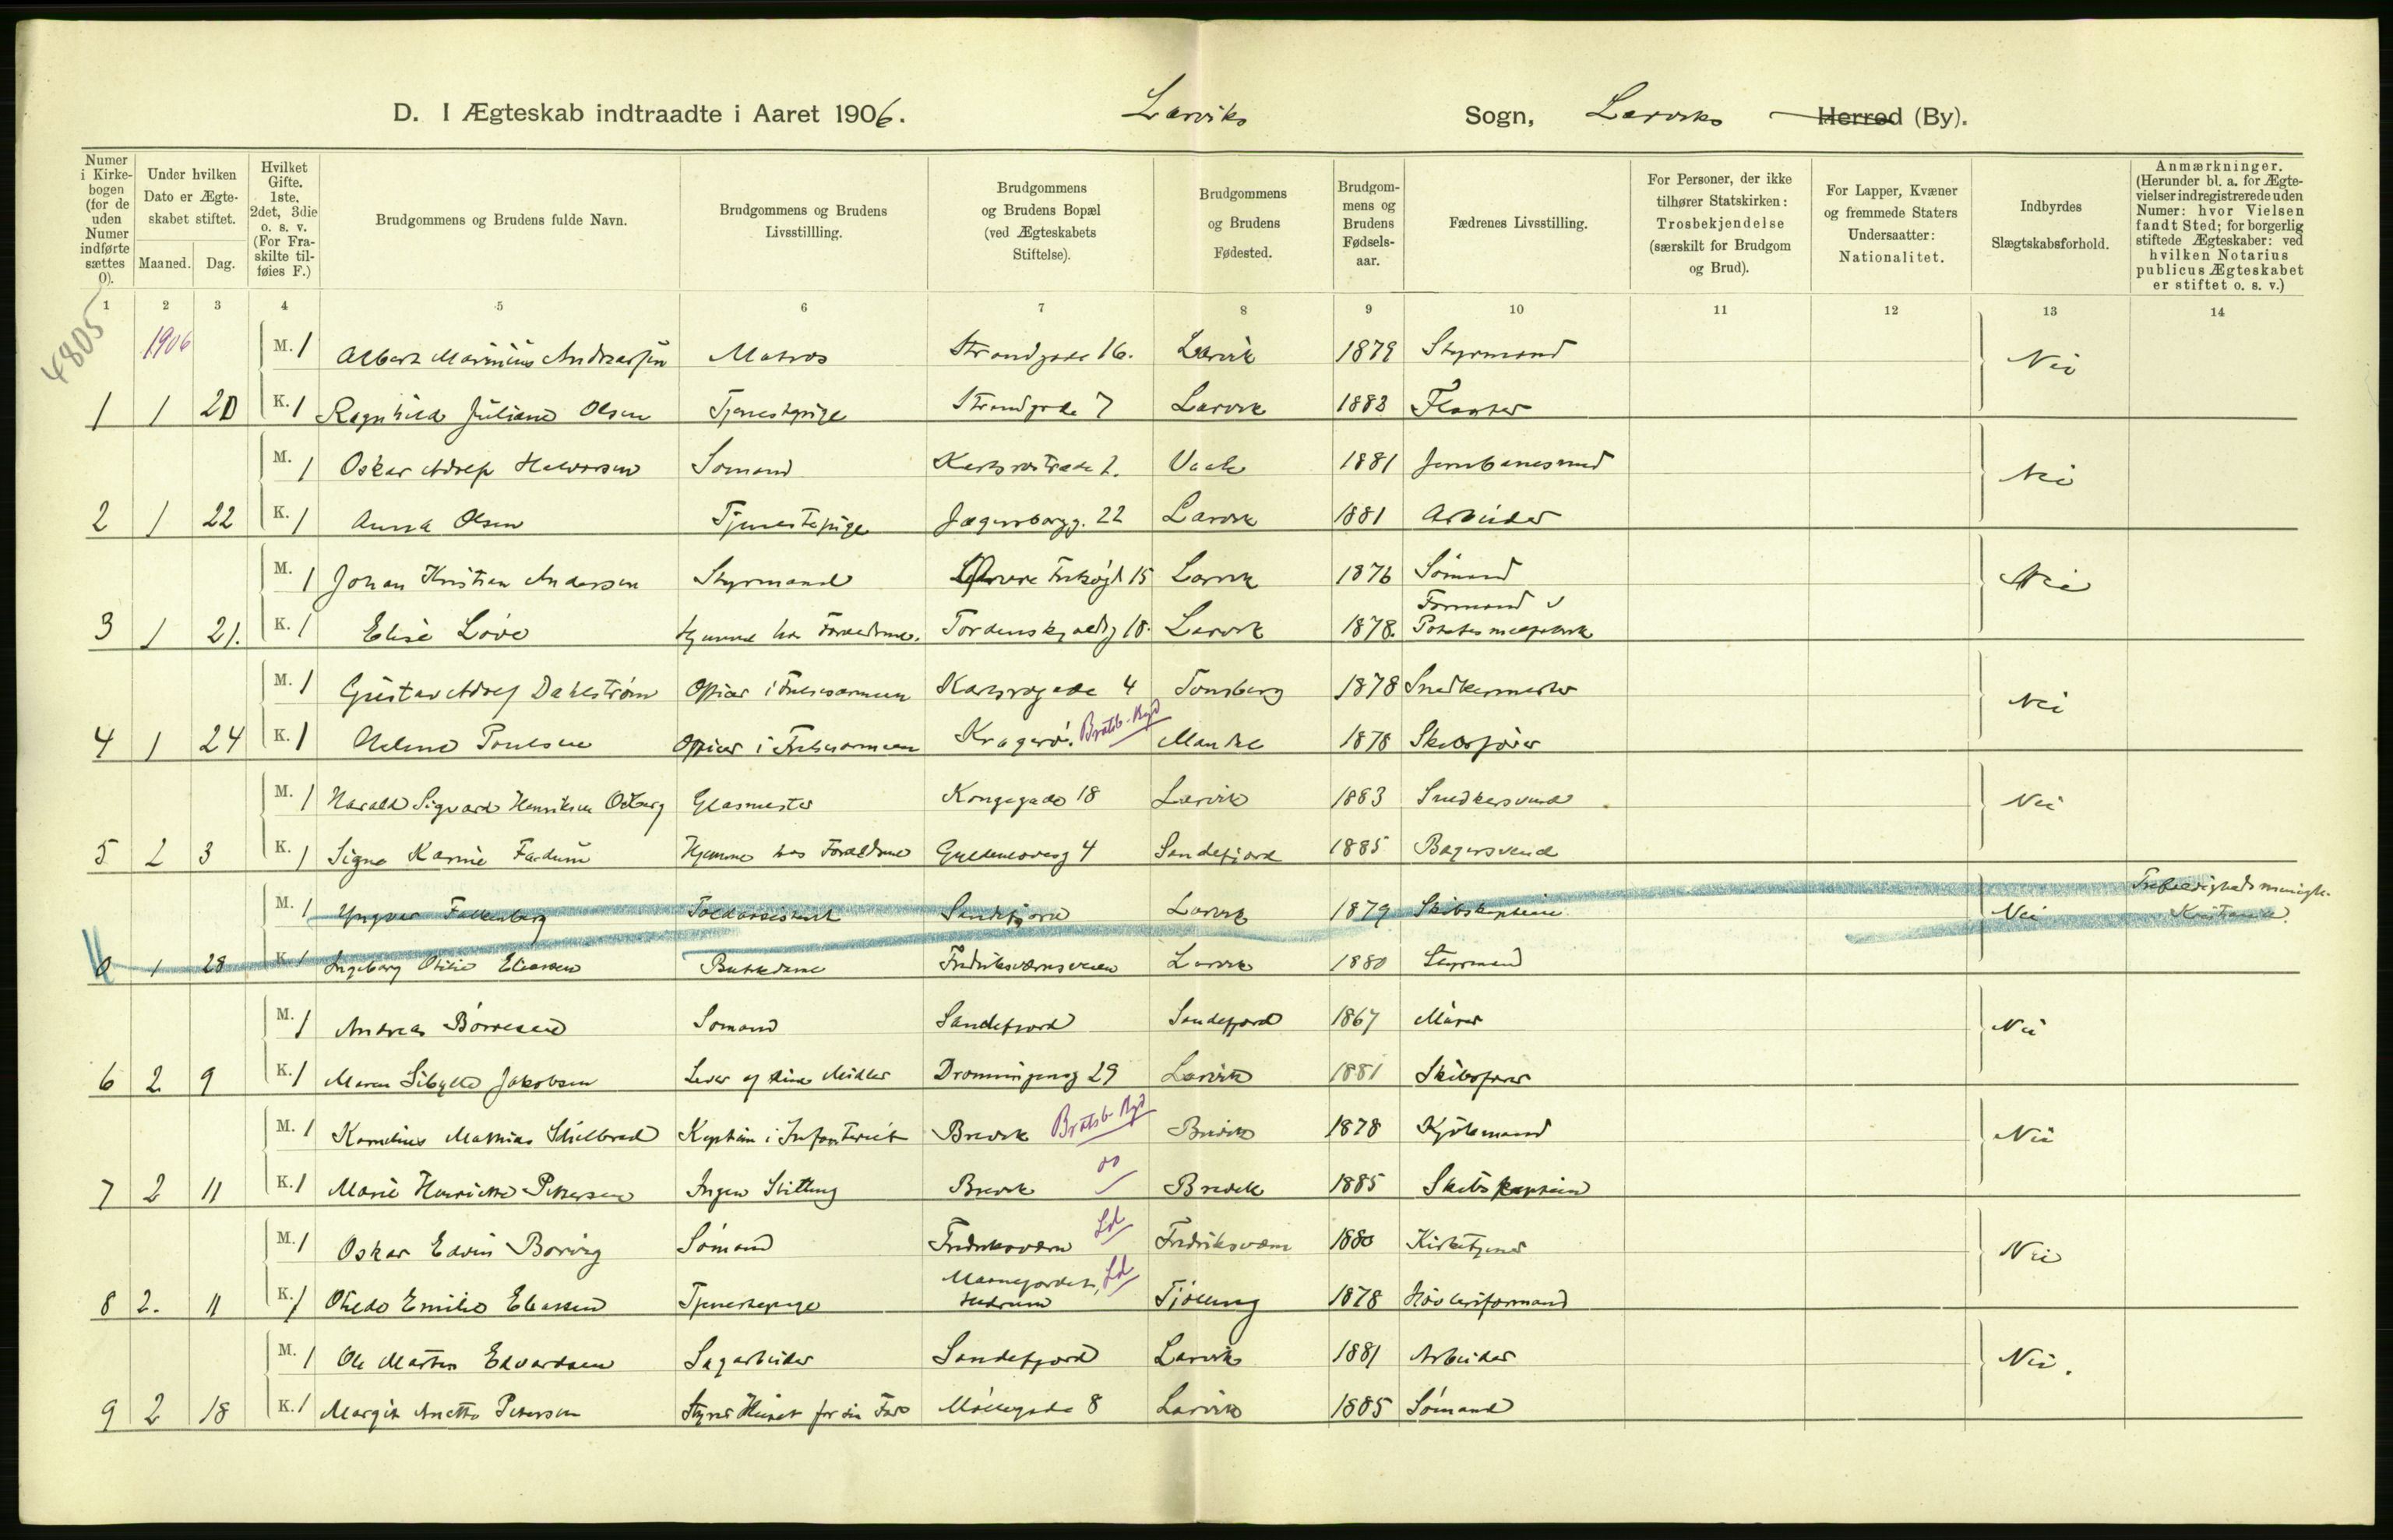 D. I Ægteskab indtraadte i Aaret 1906. Larviks Sogn, Larviks Herred (By).
Numer i Kirkebogen (for de uden Numer indførte sættes 0).
Under hvilken Dato er Ægteskabet stiftet.
Maaned. Dag.
Hvilket Gifte. 1ste, 2det, 3die o. s. v. (For Fraskilte tilføies F.)
Brudgommens og Brudens fulde Navn.
Brudgommens og Brudens Livsstillling.
Brudgommens og Brudens Bopæl (ved Ægteskabets Stiftelse).
Brudgommens og Brudens Fødested.
Brudgommens og Brudens Fødselsaar.
Fædrenes Livsstilling.
For Personer, der ikke tilhører Statskirken: Trosbekjendelse (særskilt for Brudgom og Brud).
For Lapper, Kvæner og fremmede Staters Undersaatter: Nationalitet.
Indbyrdes Slægtskabsforhold.
Anmærkninger. (Herunder bl. a. for Ægtevielser indregistrerede uden Numer: hvor Vielsen fandt Sted; for borgerlig stiftede Ægteskaber: ved hvilken Notarius publicus Ægteskabet er stiftet o. s. v.)
1 2 3 4 5 6 7 8 9 10 11 12 13 14
4805
1906
M. 1 Albert Marinius Andreassen Matros Strandgade 16. Larvik 1879 Styrmand Nei
1 1 20 K. 1 Ragnhild Juliane Olsen Tjenestepige Strandgade 7 Larvik 1883 Flaater
M. 1 Oskar Adolf Halvorsen Sømand 1881 Jernbanemand Nei
2 1 22 K. 1 Anna Olsen Tjenestepige Jægersborgg. 22 Larvik 1881 Arbeider
M. 1 Johan Kristian Andersen Styrmand 15 Larvik 1876 Sømand Nei
Formand v
3 1 21. K. 1 Elise Løve Hjemme hos Forældrene. Tordenskjoldsg 18. Larvik 1878. Potetesmelfabrik
M. 1 Gustav Adolf Dahlstrøm Officer i Frelsesarmeen Karlsrogade 4 Tønsberg 1878 Snedkermester Nei
4 1 24 K. 1 Helene Poulsen Officer i Frelsesarmeen Kragerø. Bratsb. Byd Mandal 1878 Skibsfører
M. 1 Harald Sigvard Henriksen Ødberg Glasmester Kongegade 18 Larvik 1883 Snedkersvend Nei
5 2 3 K. 1 Signe Karine Fardum Hjemme hos Forældrene Gyldenløvesg 4 Sandefjord 1885 Bagersvend
Trefoldighedsmenigh.
M. 1 Yngvar Falkenberg Toldassistent Sandefjord Larvik 1879 Skibskaptein Nei Kristiania.
0 1 28 K. 1 Ingeborg Otilie Eliassen Butikdame Fredriksværnsveien Larvik 1880 Styrmand
M. 1 Andreas Børresen Sømand Sandefjord Sandefjord 1867 Murer Nei
6 2 9 K. 1 Maren Sibylle Jakobsen Lever af sine Midler Dronningensg 29 Larvik 1881 Skibsfører
M. 1 Kornelius Mathias Skilbred Kaptein i Infanteriet Brevik Bratsb. Byd Brevik 1878 Kjøbmand Nei
7 2 11 K. 1 Marie Henriette Petersen Ingen Stilling Brevik do Brevik 1885 Skibskaptein
M. 1 Oskar Edvin Borvig Sømand Fredriksværn Ld Fredriksværn 1880 Kirketjener Nei
Ld
8 2. 11 K. 1 Otilde Emilie Eliassen Tjenestepige Hedrum Tjølling 1878 Høvleriformand
M. 1 Ole Martin Edvardsen Sagarbeider Sandefjord Larvik 1881 Arbeider Nei.
9 2 18 K. 1 Margit Anette Petersen Styrer Huset for sin Far Møllegade 8 Larvik 1885 Sømand